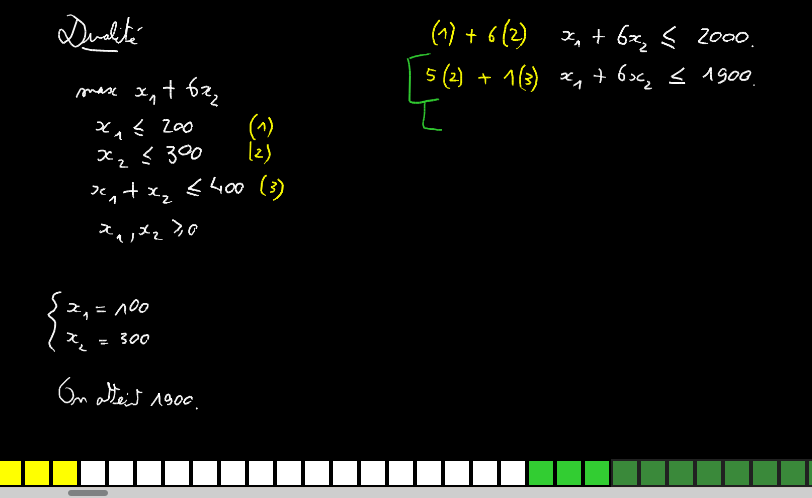 Dualité
max x₁ + 6x₂
x₁ ≤ 200 (1)
x₂ ≤ 300 (2)
x₁ + x₂ ≤ 400 (3)
x₁, x₂ ≥ 0
{ x₁ = 100
x₂ = 300
On atteint 1900.
(1) + 6(2) x₁ + 6x₂ ≤ 2000.
5(2) + 1(3) x₁ + 6x₂ ≤ 1900.